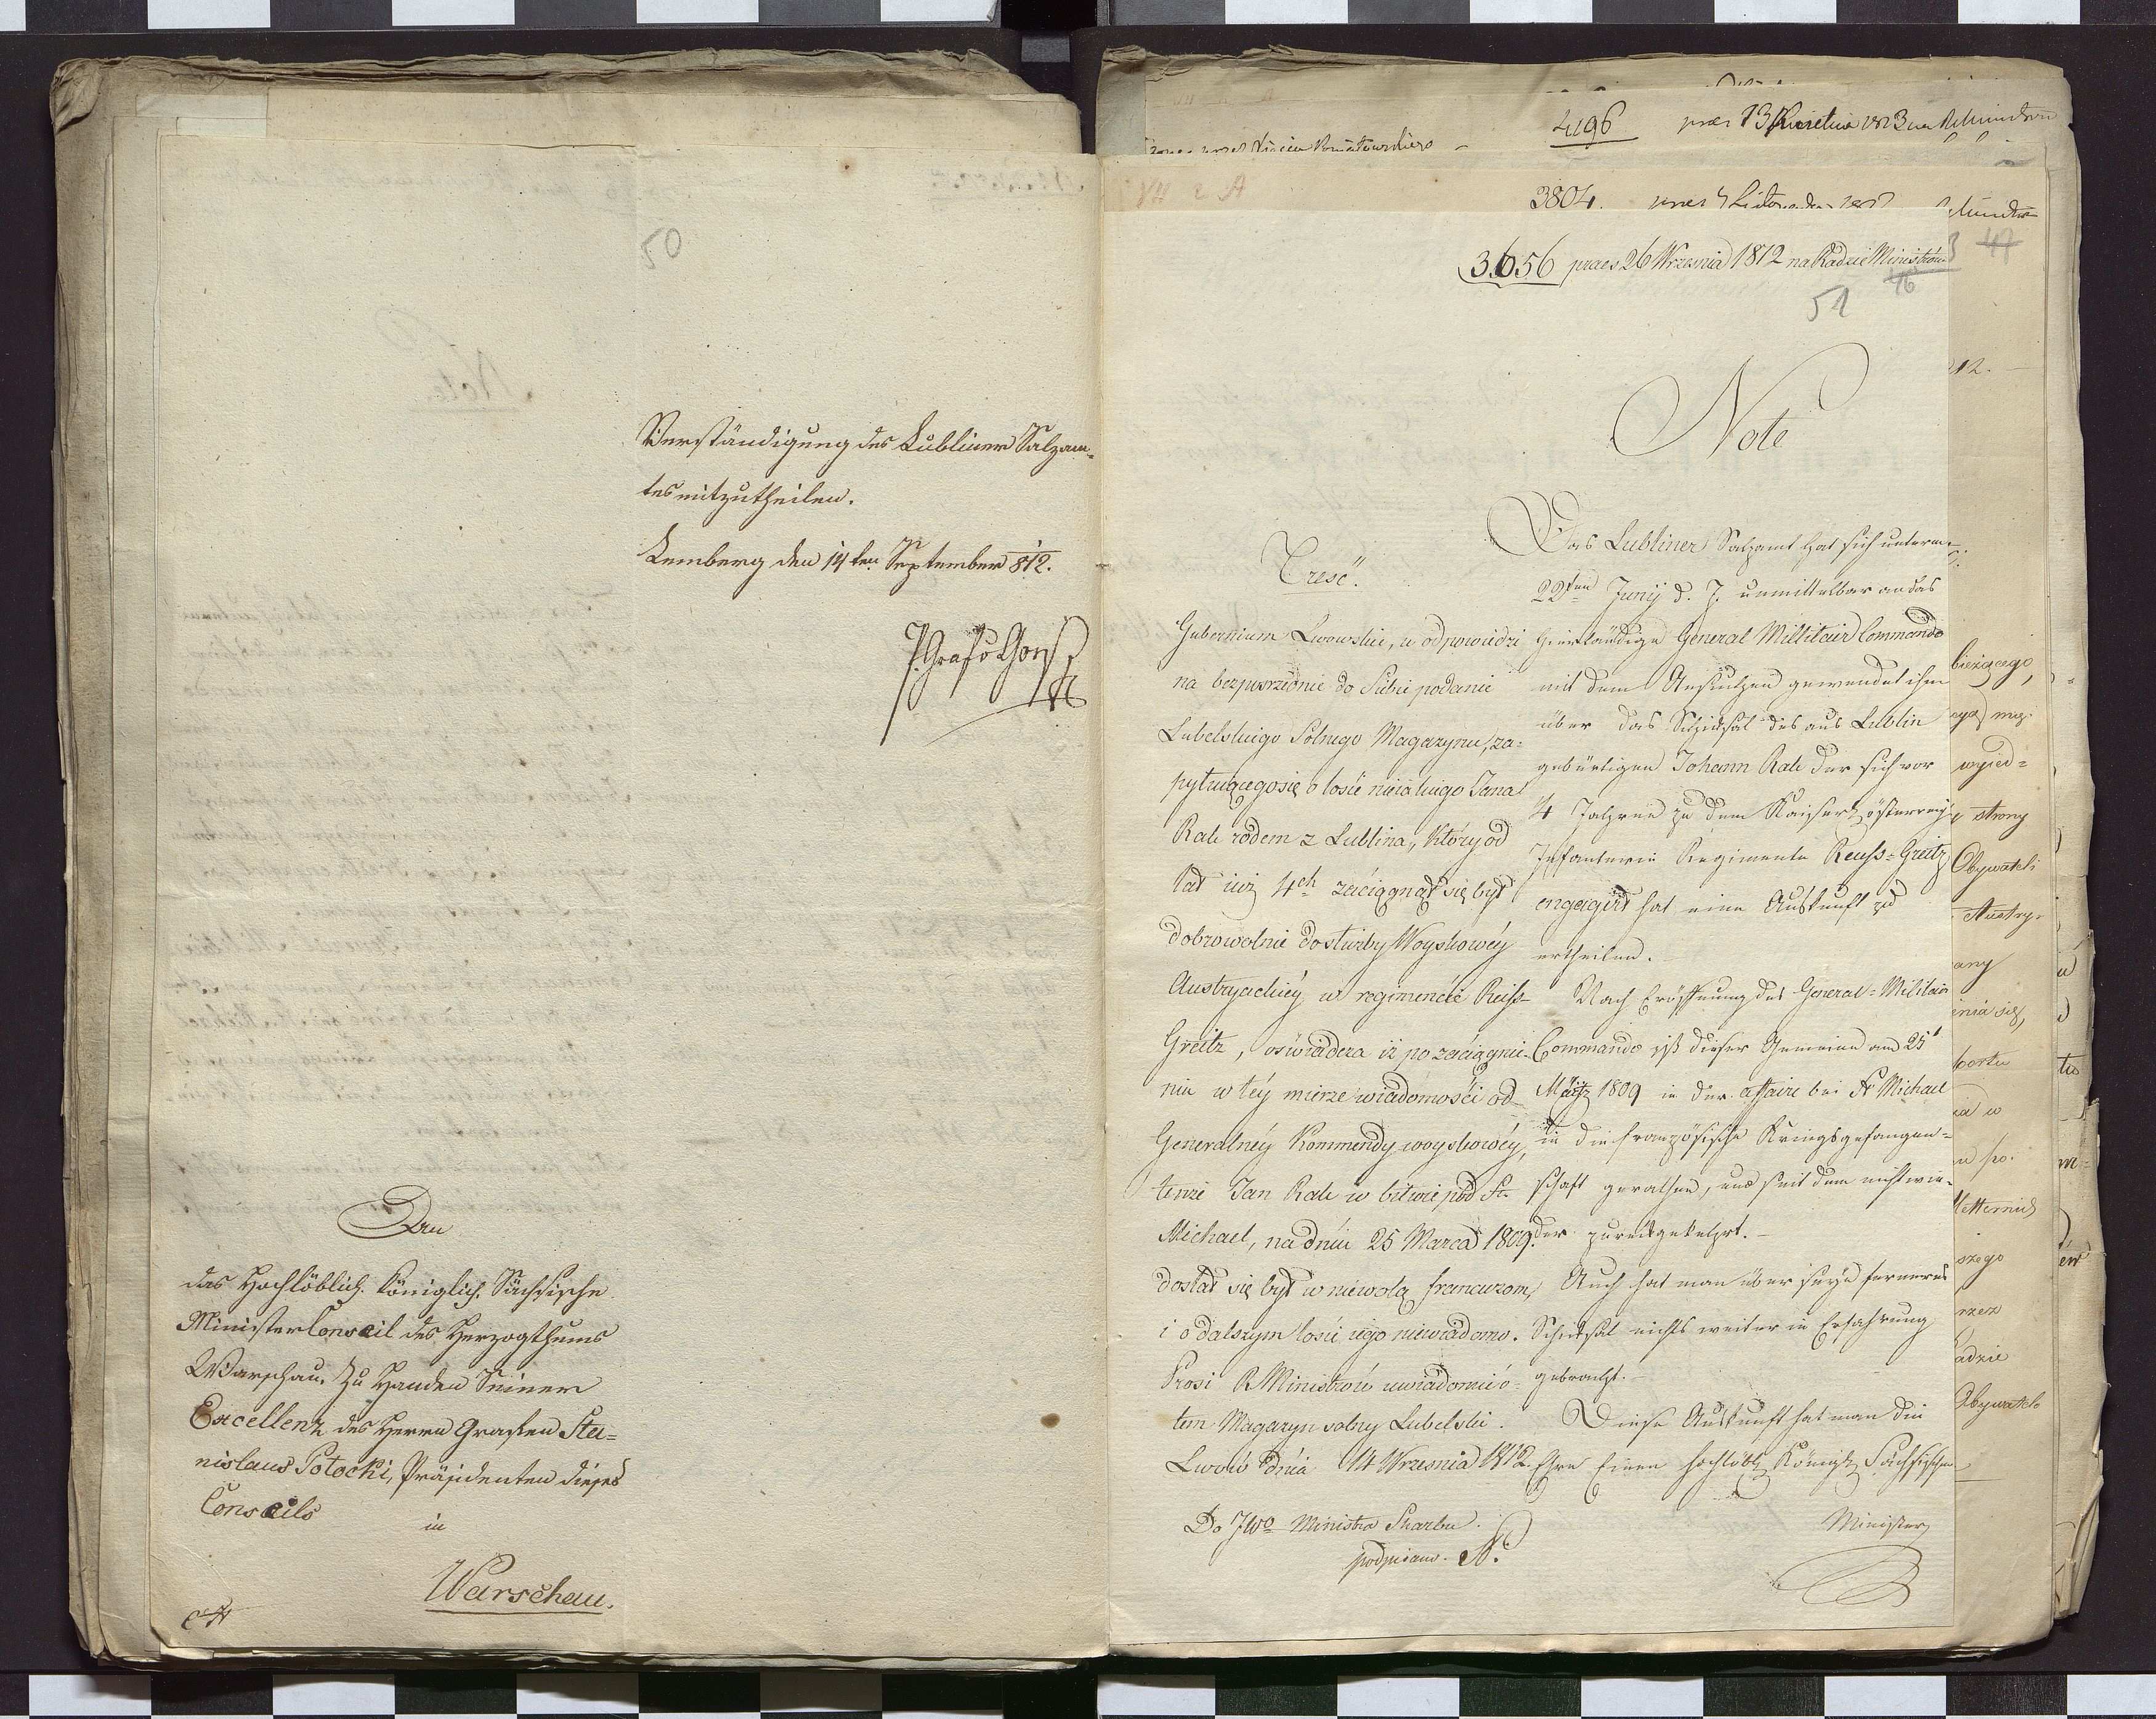 50
Verständigung des Lubliner Salzam-
tes mitzutheilen.
Lemberg den 14ten September 812.
P. Graf v Goës
An
das Hochlöblich. Königlich. Sächsische
Minister Conseil des Herzogthums
Warschau, zu Handen Seiner
Excellenz des Herrn Grafen Sta=
nislaus Potocki, Präsidenten dieses
Conseils
in
Warschau.
4196
VII 2 A
3804.
3656 praes 26 Września 1812 na Radzie Ministrów
47
46
51
Note
Treść.
Gubernium Lwowskie, w odpowiedzi
na bezpośrzednie do Siebie podanie
Lubelskiego Solnego Magazynu, za=
pytuiącego się o losie nieiakiego Jana
Rak rodem z Lublina, który od
lat iuż 4ch zaciągnął się był
dobrowolnie do służby Woyskowéy
Austryackiéy w regimencie Reuss
Greitz, oświadcza iż po zaciągnie-
niu w téy mierze wiadomości od
Generalnéy Kommendy woyskowéy,
tenże Jan Rak w bitwie pod St.
Michael, na dniu 25 Marca 1809.
dostał się był w niewolą francuzom,
i o dalszym losie iego niewiadomo.
Prosi R Ministrów uwiadomić o
tem Magazyn solny Lubelski.
Lwów dnia 14 Września 1812.
Do JWo Ministra Skarbu.
podpisano.
Das Lubliner Salzamt hat sich unterm
22ten Junÿ d. J. unmittelbar an das
hierländige General Millitair Commando
mit dem Ansuchen gewendet ihm
über das Schicksal des aus Lublin
gebürtigen Johann Rak der sich vor
4 Jahren zu dem Kaiserl. österreich.
Infanterie Regimente Reuss=Greitz
engagirt hat eine Auskunft zu
ertheilen.
Nach Eröffnung des General=Militair
Commando ist dieser Gemeine am 25t
März 1809 in der affaire bei St Michael
in die französische Kriegsgefangen=
schaft gerathen, und seit dem nicht wie-
der zurückgekehrt.
Auch hat man über seÿn ferneres
Schicksal nichts weiter in Erfahrung
gebracht.
Diese Auskunft hat man die
Ehre Einem hochlöbl. Königl. Sächsischen
Minister
212.
bieżącego,
wyied=
strony
Obywateli
Austry-
any